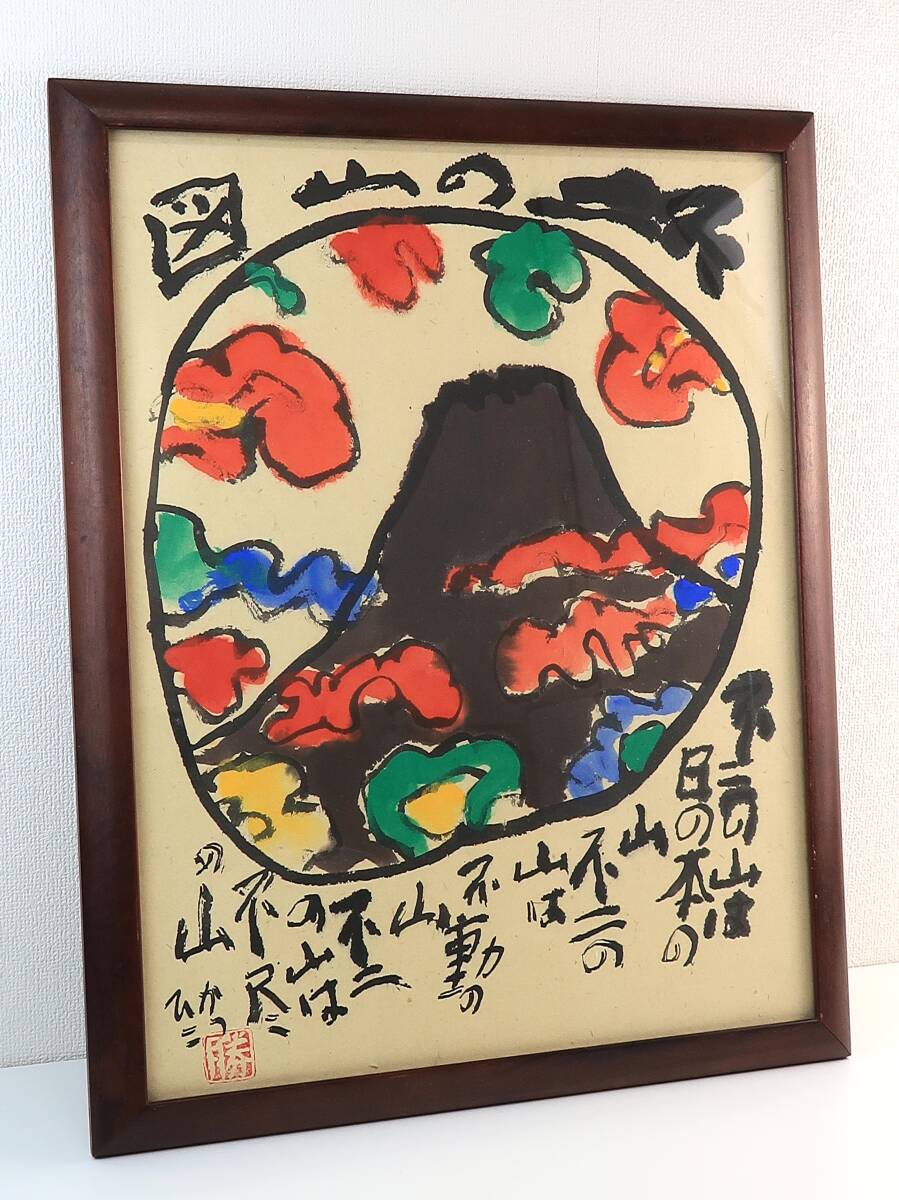 不二の山図
不二の山は
日の本の
山
不二の
山は
不動の
山
不二
の山は
不尽
の山
かつ
ひこ
勝